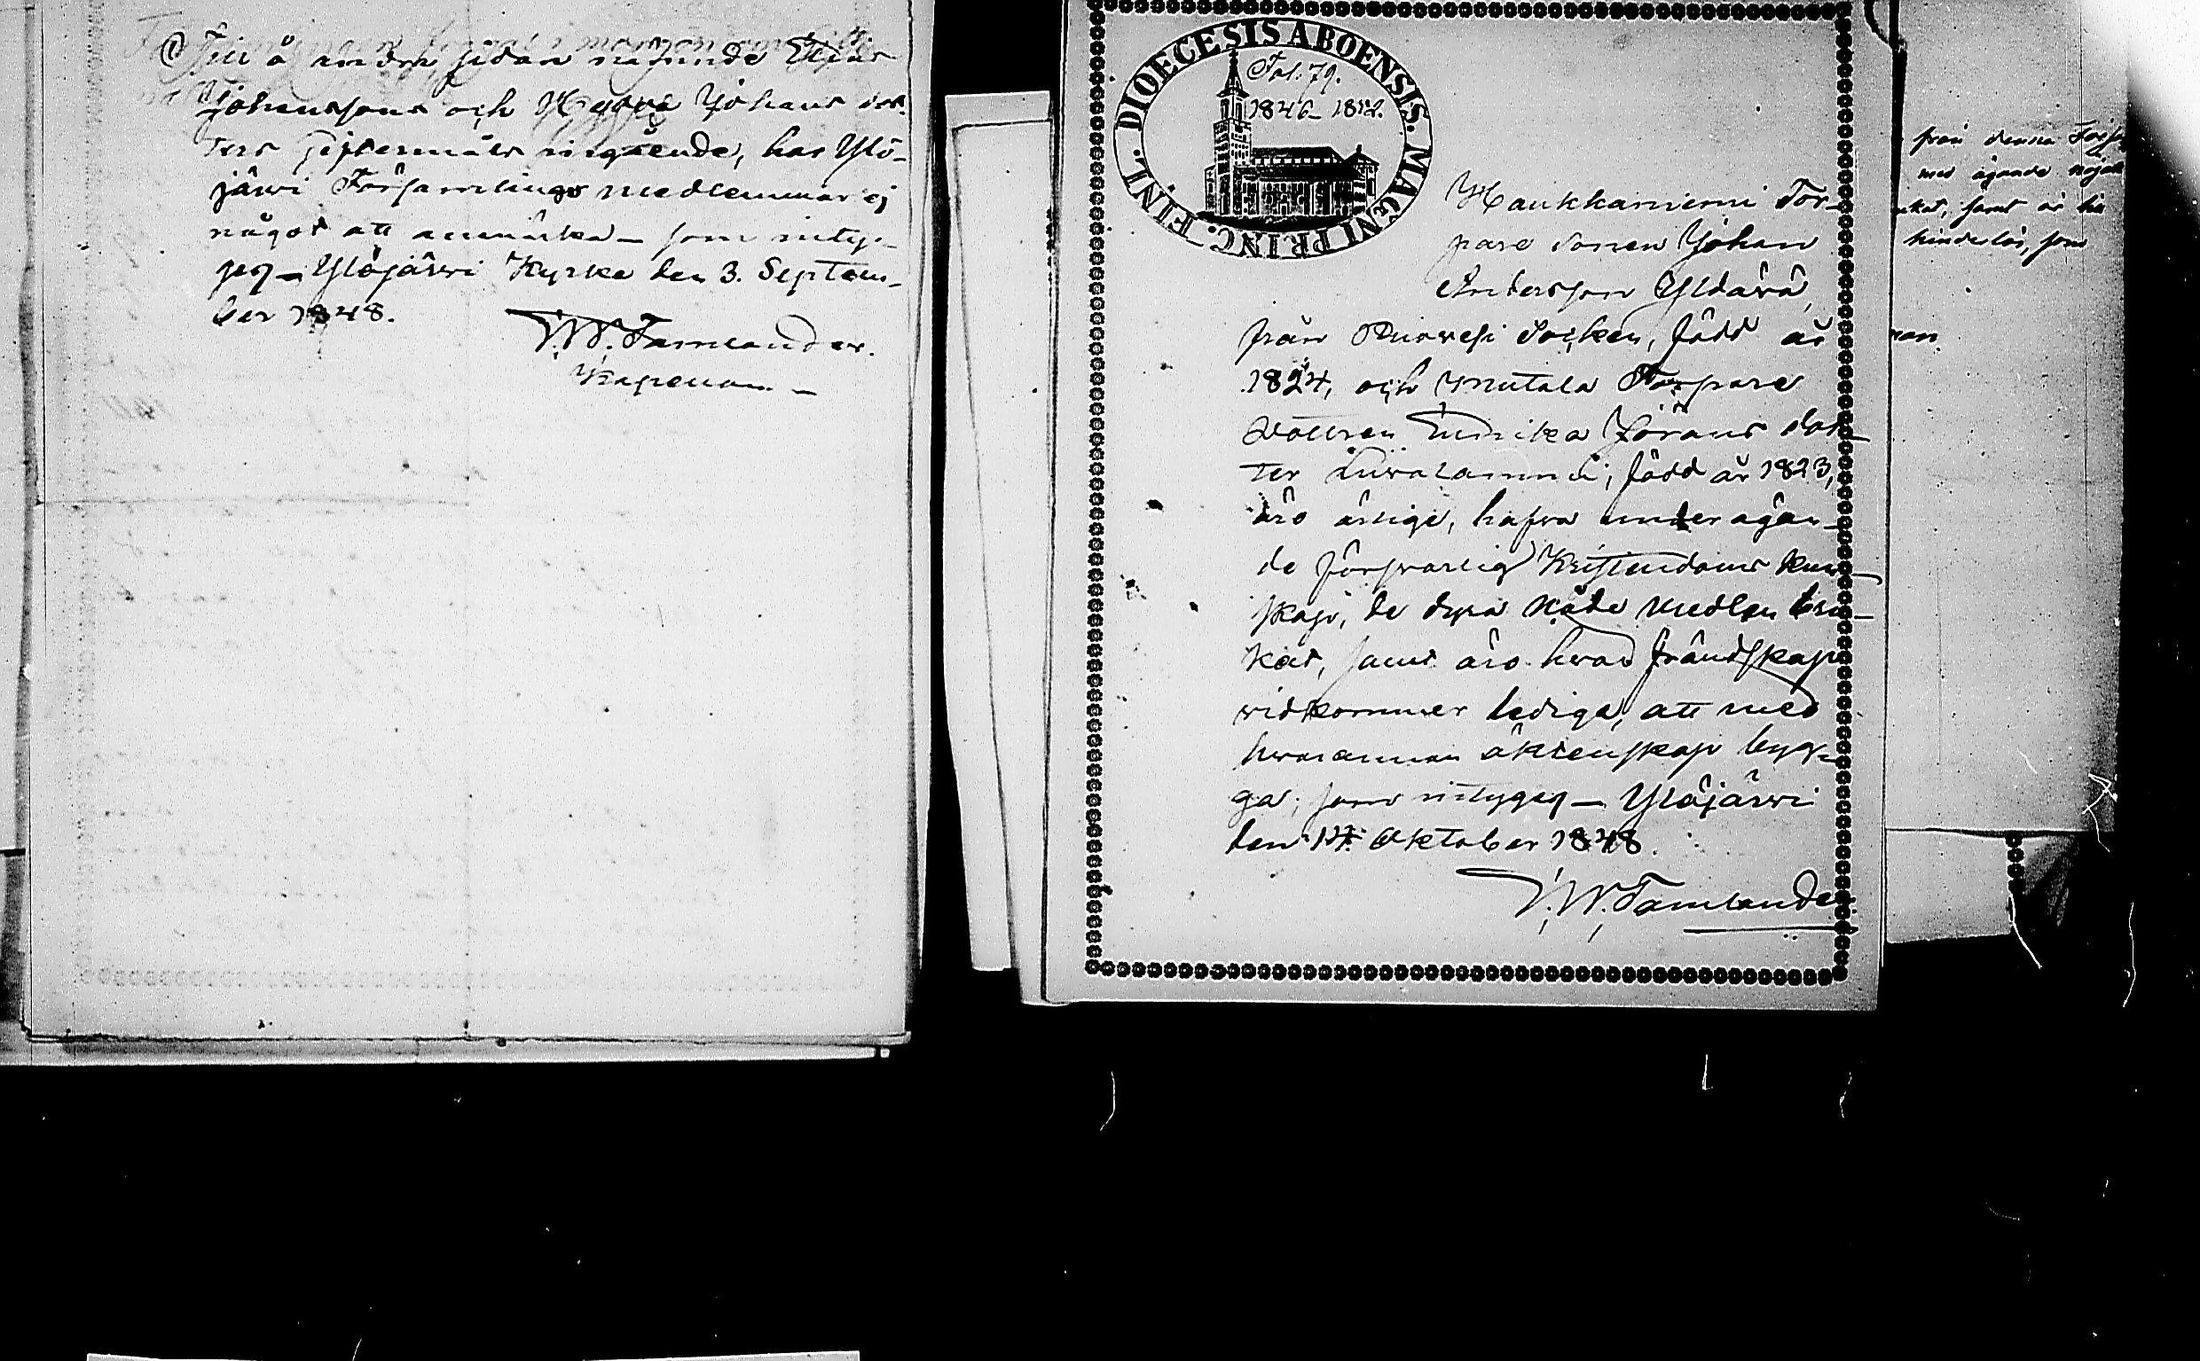 Till å andra sidan
Johanssons och Johans dot-
ters giftermål angående, har Ylö-
järwi Församlings medlemmar ej
något att anmärka – som intyg-
gas – Ylöjärwi Kyrka den 3. Septem-
ber 1848.
Kapellan
DIOECESIS ABOENSIS. MAGNI PRINC. FINL.
Fol. 79.
1846–1852.
Haukkaniemi Tor-
pare sonen Johan
Andersson
från Ruowesi Socken, född år
1824, och Mutala Torpare
dottren Johans dot-
ter född år 1823,
äro ärlige, hafva under ågån-
de förswarlig Kristendoms kun-
skap, de dyra Nåde medlen bru-
kat, samt äro hwad frändskap
widkommer lediga, att med
hwarannan äktenskap byg-
ga; som intygas – Ylöjärwi
den 14. Oktober 1848.
från denna
med ägande
samt är
hinderlös, som